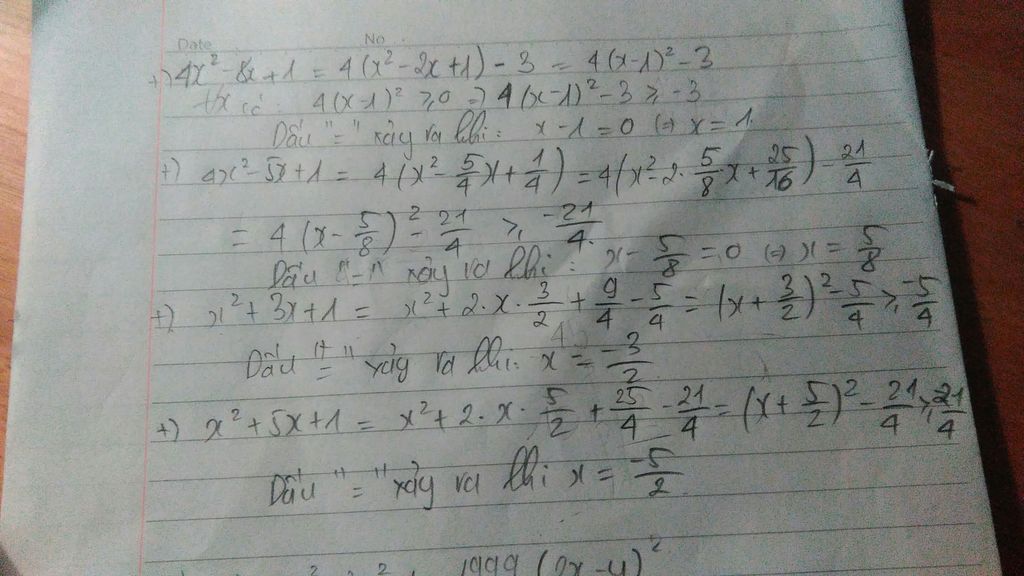 Date No
+) 4x² - 8x + 1 = 4(x² - 2x + 1) - 3 = 4(x-1)² - 3
∀x có: 4(x-1)² ≥ 0 => 4(x-1)² - 3 ≥ -3
Dấu "=" xảy ra khi: x - 1 = 0 (=) x = 1
+) 4x² - 5x + 1 = 4(x² - 5/4 x + 1/4) = 4(x² - 2 · 5/8 x + 25/16) - 21/4
= 4(x - 5/8)² - 21/4 ≥ -21/4.
Dấu "=" xảy ra khi: x - 5/8 = 0 (=) x = 5/8
+) x² + 3x + 1 = x² + 2 · x · 3/2 + 9/4 - 5/4 = (x + 3/2)² - 5/4 ≥ -5/4
Dấu "=" xảy ra khi: x = -3/2
+) x² + 5x + 1 = x² + 2 · x · 5/2 + 25/4 - 21/4 = (x + 5/2)² - 21/4 ≥ -21/4
Dấu "=" xảy ra khi x = -5/2
1999 (2x - y)²